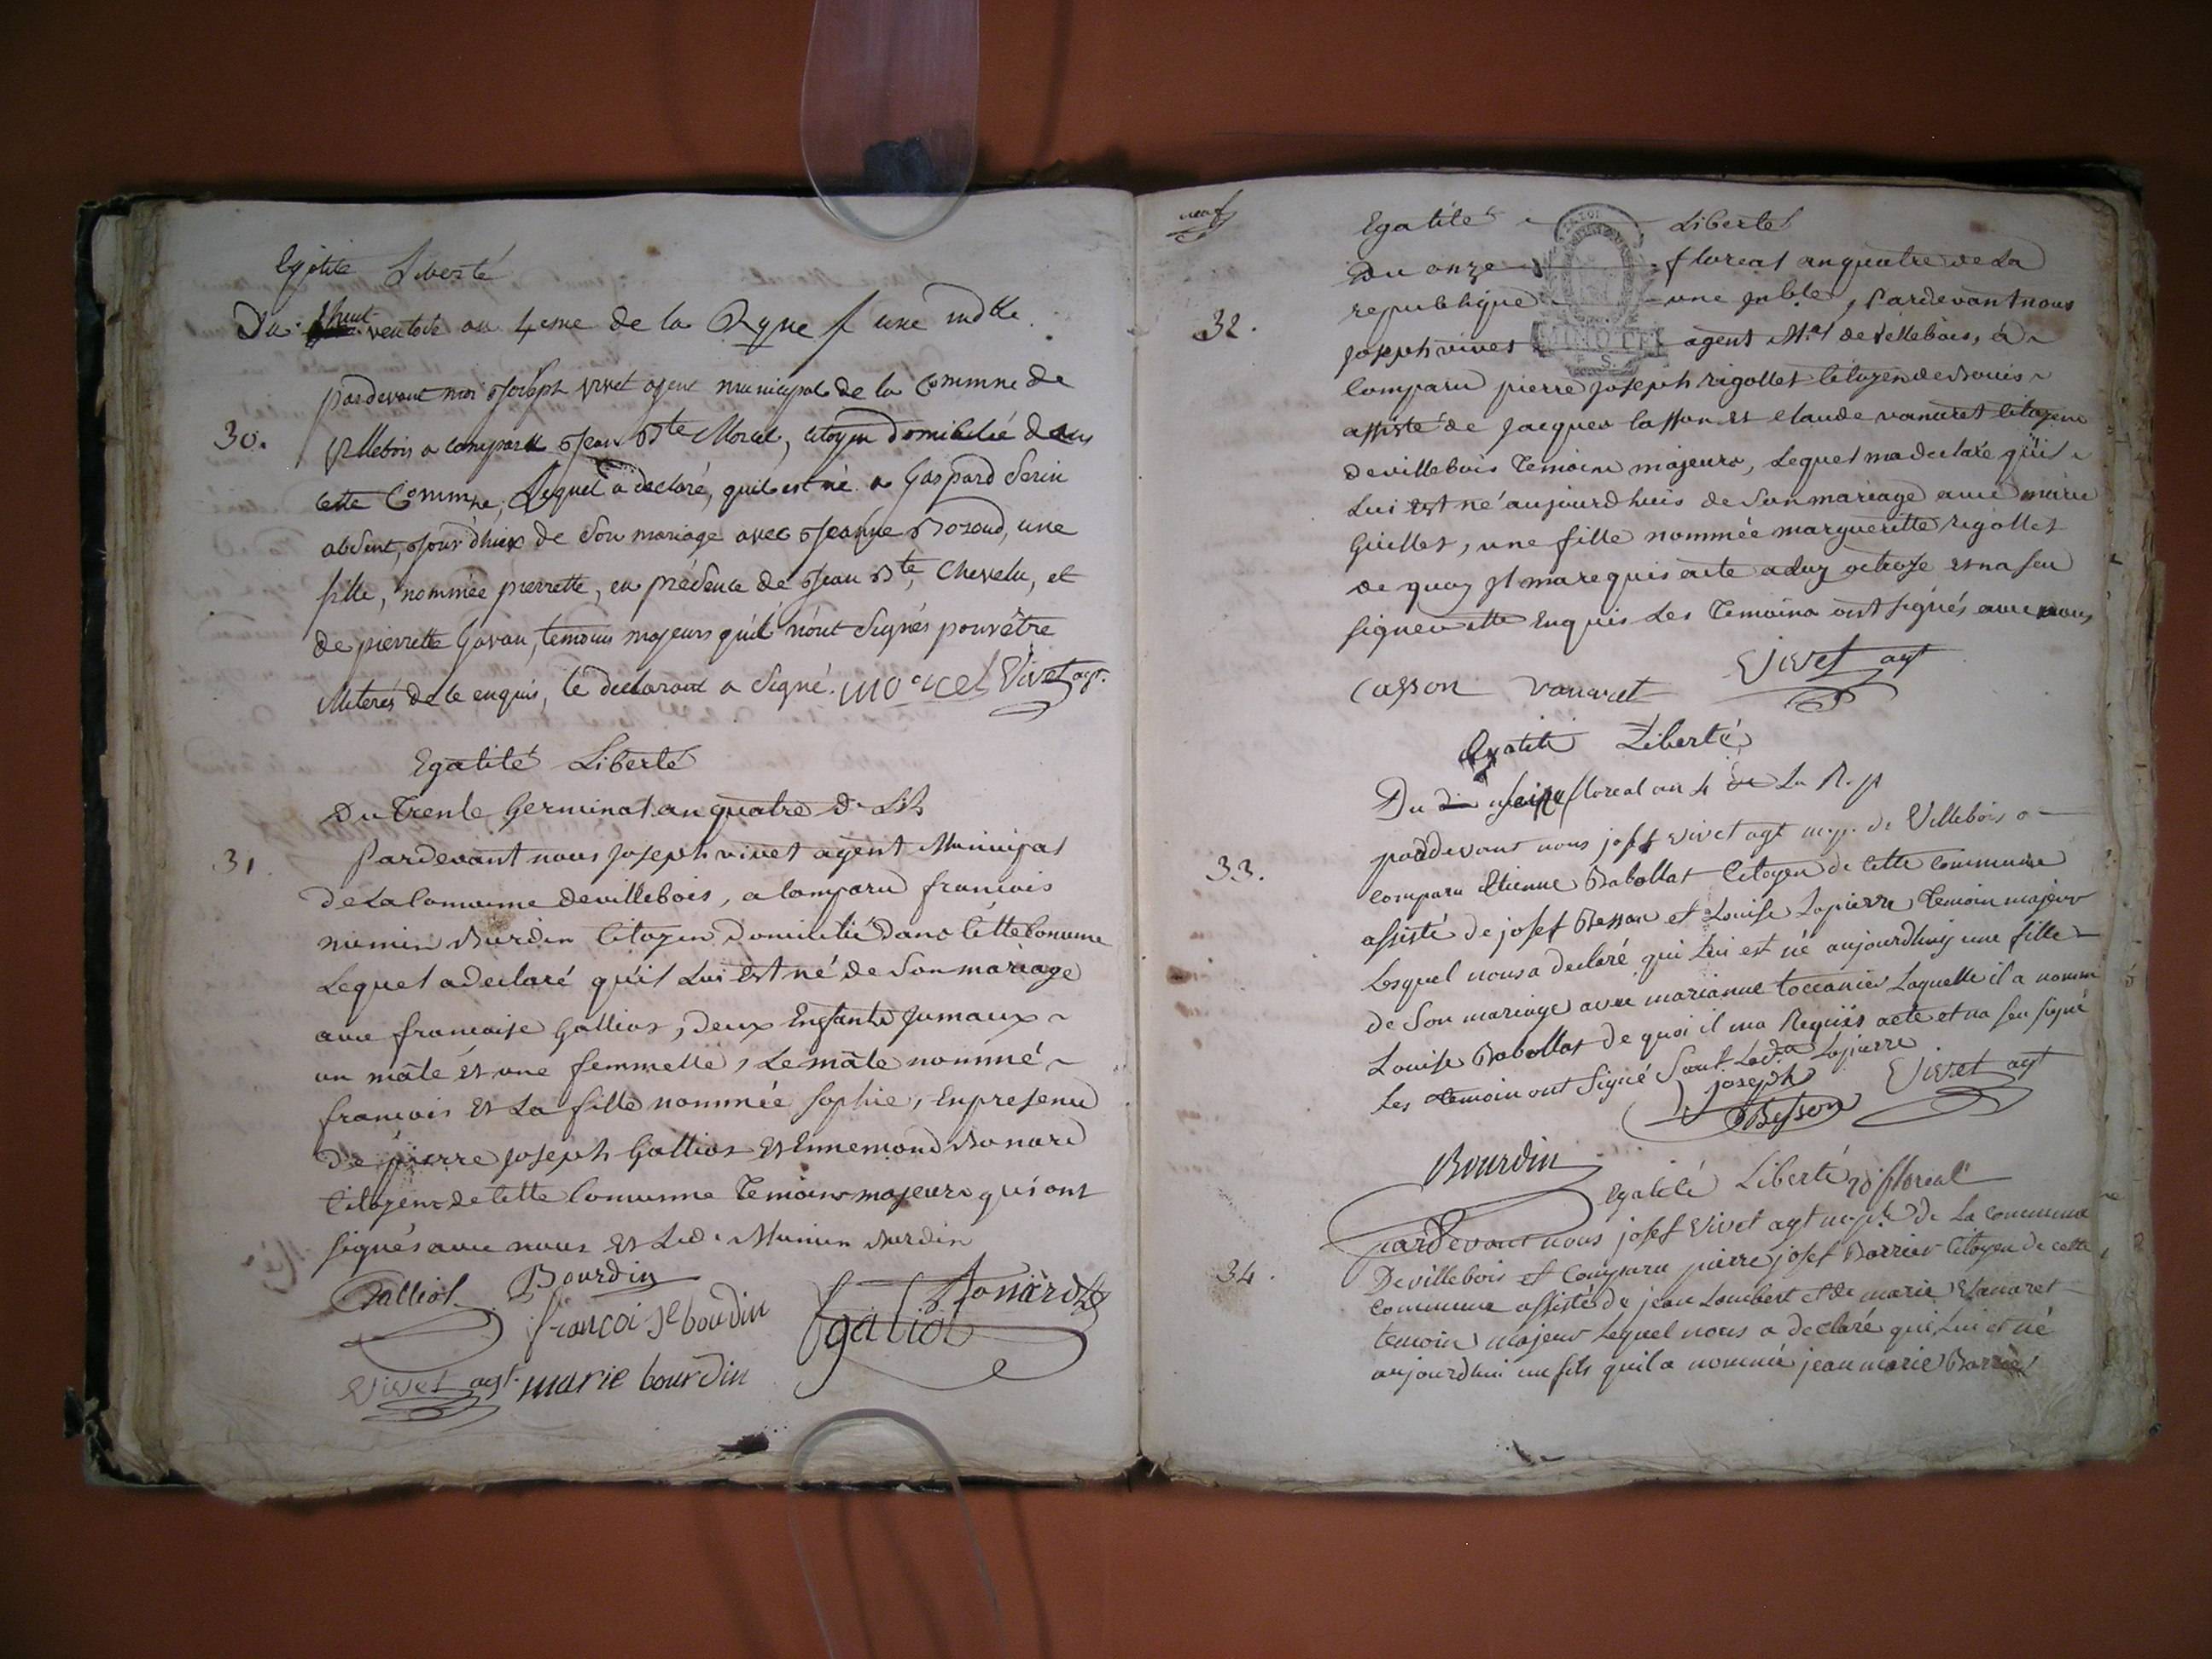 Egalité Liberté
Du huit ventose an 4eme de la Rque f une indble
30.
pardevant moi Joseph vivet agent municipal de la Commune de
Villebois a comparu Jean Bte Morcel, citoyen domicilié dans
cette Commune, Lequel a declaré, quil est né a Gaspard Serin
absent, Jour d'hier de Son mariage avec Jeanne Bozoud, une
fille, nommée pierrette, en présence de Jean Bte Chevelu, et
de pierrette Gavau, temoins majeurs qui n'ont Signés pour être
illiterés de ce enquis, le declarant a Signé. morcel Vivet agt.
Egalité Liberté
Du Trente Germinal an quatre d. L.R
31.
Pardevant nous Joseph vivet agent Municipal
de La Commune devillebois, a Comparu francois
mumin Burdin Citoyen Domicilié Dans Cétte Comune
Lequel a declaré qu'il Lui Est né de Son mariage
avec francoise Galliot, deux Enfants Jumaux
un mâle et une femmelle, Le mâle nommé
francois Et La fille nommée Sophie, En presence
de pierre Joseph Galliot Et Ennemond Bonard
Citoyens de Cette Commune Temoins majeurs qui ont
signés avec nous Et Led. Mumin Burdin
Galliot Bourdin Bonard
francoise boudin galiot
Vivet agt. marie bourdin
neuf
Egalité Liberté
Du onze floreal an quatre de La
32.
republique une Jnble, Pardevant nous
Joseph vivet agent M.al de villebois, à
Comparu pierre Joseph rigollet Citoyen de Bouis
assisté de Jacques Casson Et Claude vanaret Citoyens
de villebois Temoins majeurs, Lequel ma declaré qu'il
Lui Est né aujourdhuis de Son mariage avec marie
Guillet, une fille nommée marguerette rigollet
de quoy Jl ma requis acte a luy octroyé et na Seu
signer de ce Enquis Les Temoins ont signés avec nous
Casson vanaret Vivet agt
Egalité Liberté
Du seize floreal an 4 de La R.p
33.
pardevant nous josef vivet agt m.p. de Villebois a
Comparu Etienne Babollat Citoyen de Cette Commune
assisté de josef Besson et Louise Lapierre Temoin majeur
Lesquel nous a declaré qui Lui est né aujourdhuy une fille
de Son mariage avec marianne toccanier Laquelle il a nommé
Louise Babollat de quoi il ma Requis acte et na seu signé
Les temoin ont Signé Sauf Ladte Lapierre
Joseph Besson Vivet agt
Bourdin
Egalité Liberté 20 floreal
34.
pardevant nous josef Vivet agt m.pl de La commune
De villebois et Comparu pierre josef Barrier Citoyen de cette
Commune assisté de jean Loubert et de marie Vanaret
temoin majeur Lequel nous a declaré qui Lui et né
aujourdhui un fils quil a nommé jean marie Barrier